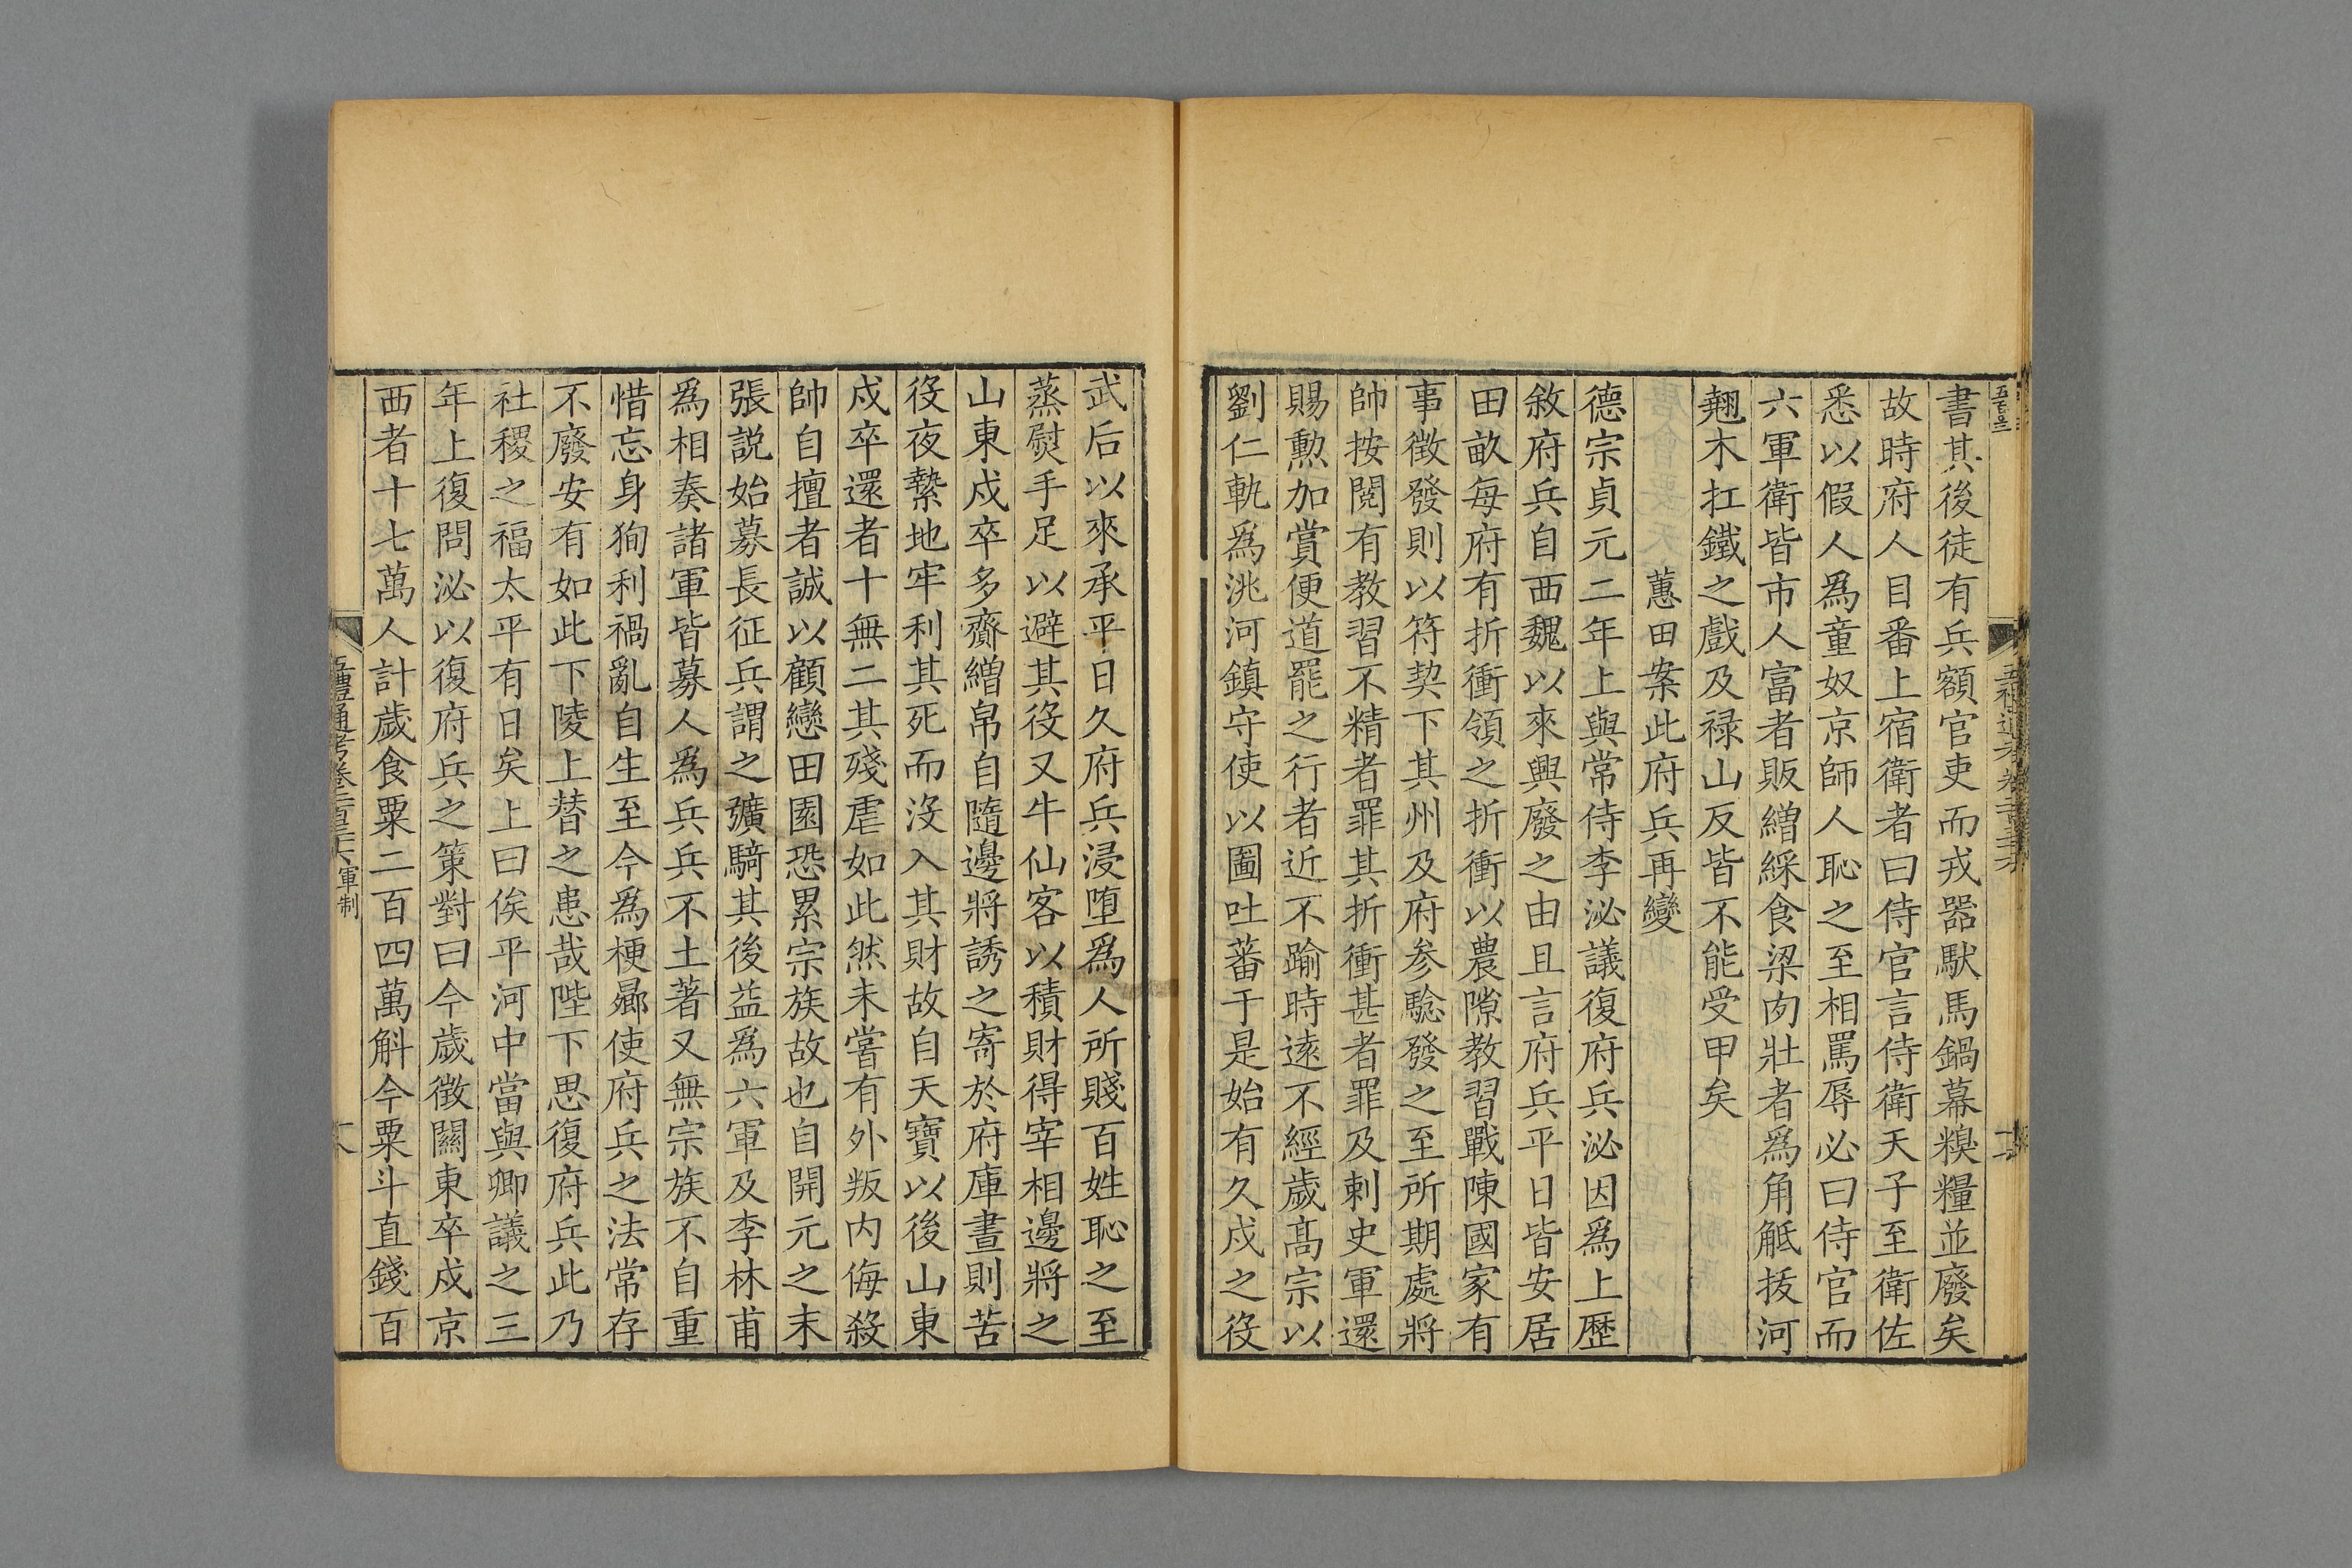 書其後徒有兵額官吏而戎器馱馬鍋幕糗糧並廢矣
故時府人目番上宿衛者曰侍官言侍衛天子至衛佐
悉以假人爲童奴京師人恥之至相罵辱必曰侍官而
六軍衛皆市人富者販繒綵食梁肉壯者爲角觝拔河
翹木扛鐵之戲及禄山反皆不能受甲矣
蕙田案此府兵再變
德宗貞元二年上與常侍李泌議復府兵泌因爲上歷
敘府兵自西魏以來興廢之由且言府兵平日皆安居
田畝每府有折衝領之折衝以農隙教習戰陳國家有
事徵發則以符契下其州及府参驗發之至所期處將
帥按閱有教習不精者罪其折衝甚者罪及刺史軍還
賜勲加賞便道罷之行者近不踰時遠不經歲髙宗以
劉仁軌爲洮河鎮守使以圖吐蕃于是始有久戍之役
武后以來承平日久府兵浸堕爲人所賤百姓恥之至
蒸熨手足以避其役又牛仙客以積財得宰相邊將之
山東戍卒多齎繒帛自隨邊將誘之寄於府庫晝則苦
役夜縶地牢利其死而沒入其財故自天寶以後山東
戍卒還者十無二其殘虐如此然未嘗有外叛内侮殺
帥自擅者誠以顧戀田園恐累宗族故也自開元之末
張説始募長征兵謂之彍騎其後益爲六軍及李林甫
爲相奏諸軍皆募人爲兵兵不土著又無宗族不自重
惜忘身狥利禍亂自生至今爲梗曏使府兵之法常存
不廢安有如此下陵上替之患哉陛下思復府兵此乃
社稷之福太平有日矣上曰俟平河中當與卿議之三
年上復問泌以復府兵之策對曰今歲徵關東卒戍京
西者十七萬人計歲食粟二百四萬斛今粟斗直錢百
五禮通考卷二百三十六軍制